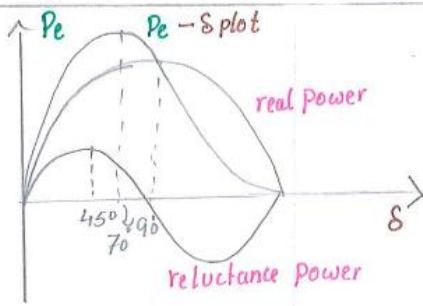 Pe
Pe - δ plot
real power
45°
70
90
δ
reluctance power